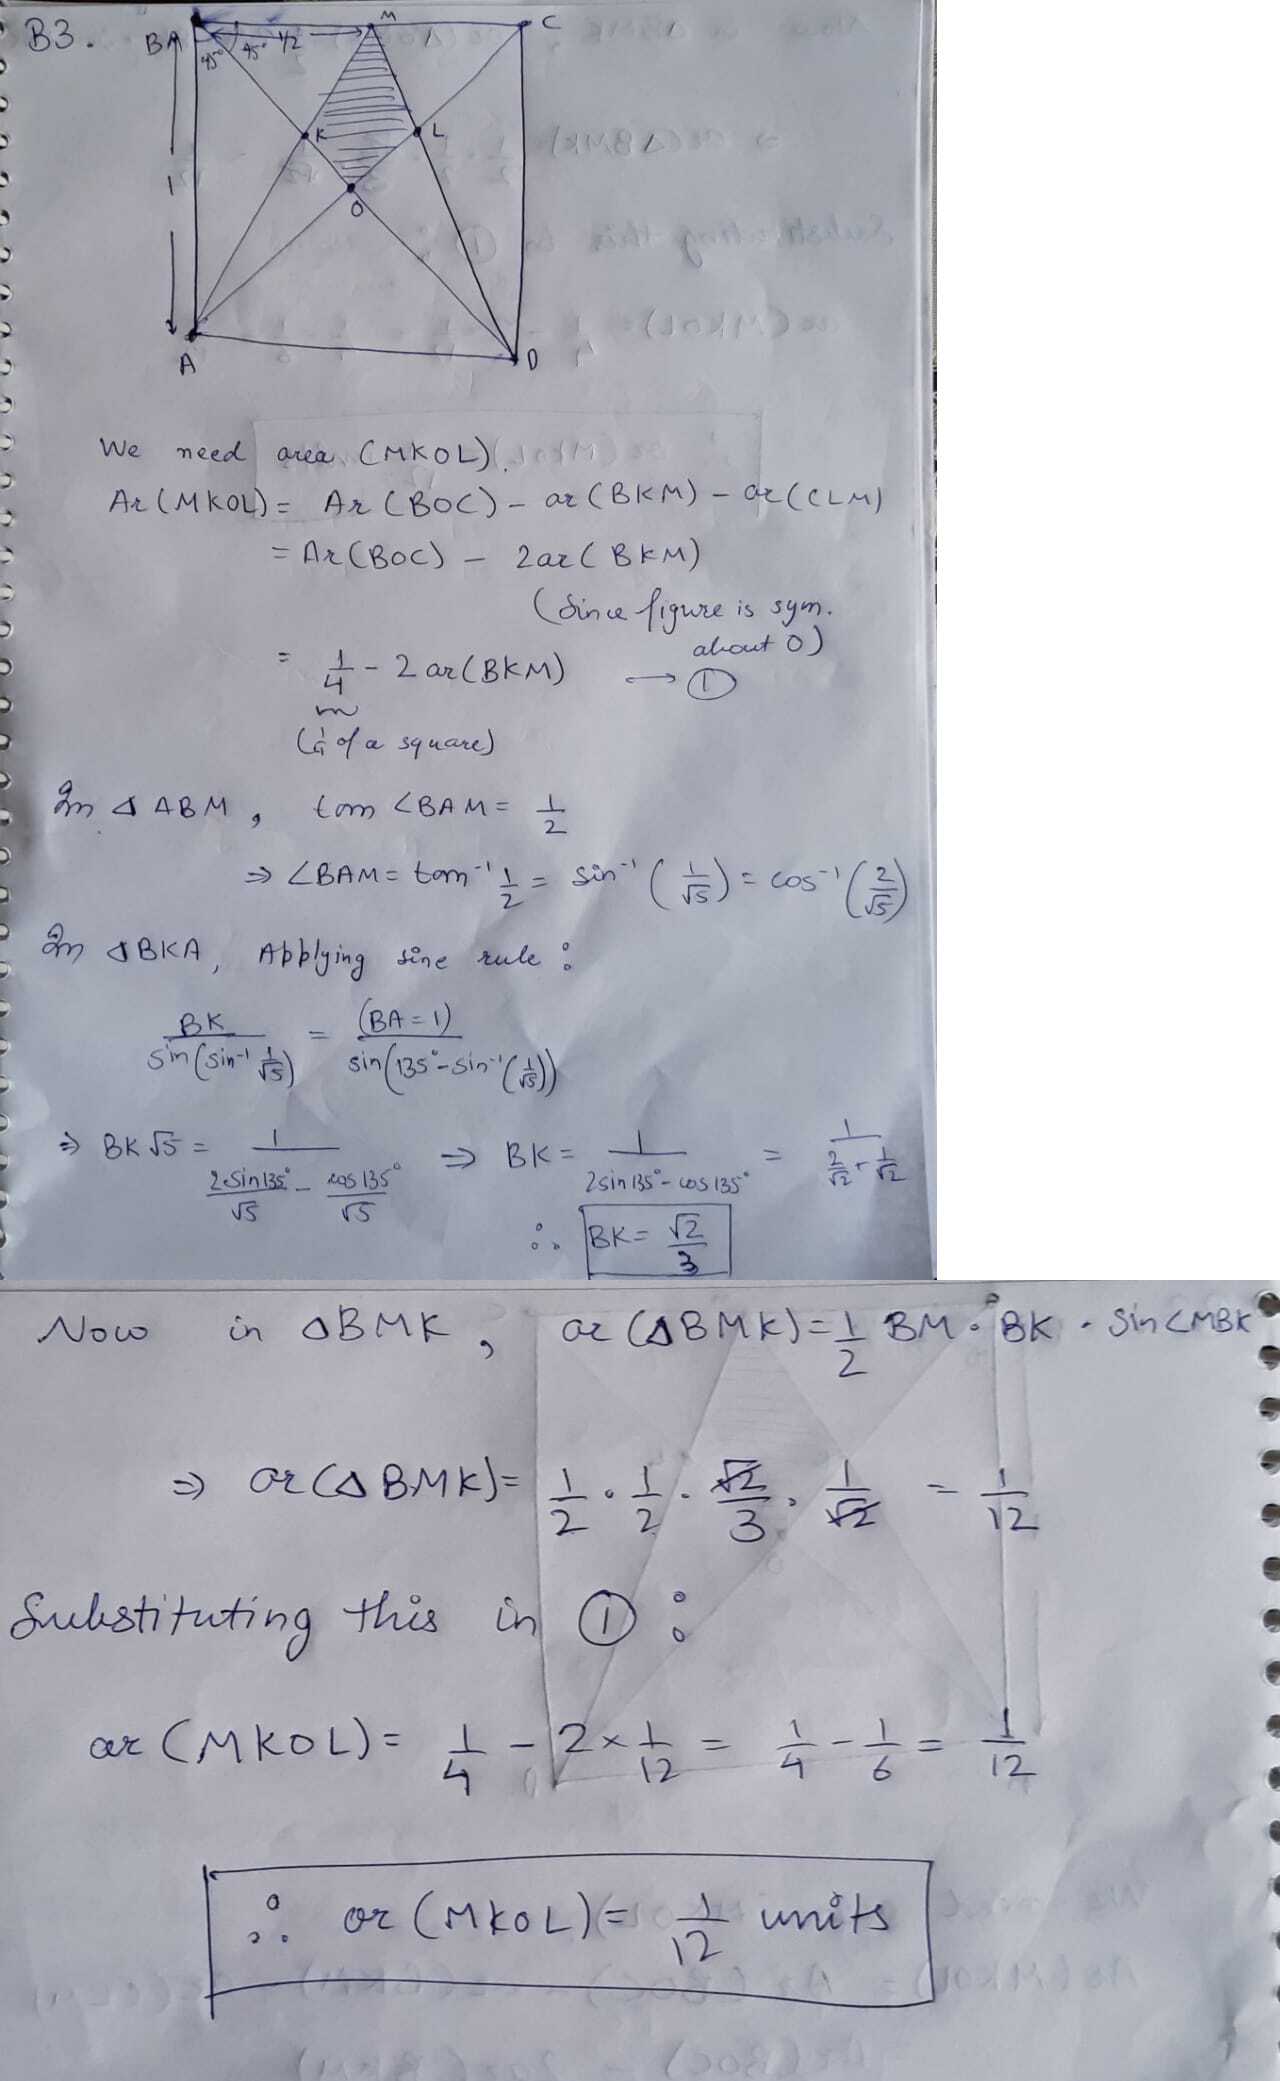 B3.
B M C
45° 45° 1/2
K L
1
O
A D
We need area (MKOL).
Ar(MKOL) = Ar(BOC) - ar(BKM) - ar(CLM)
= Ar(BOC) - 2ar(BKM)
(Since figure is sym. about O)
= 1/4 - 2ar(BKM) → ①
(1/4 of a square)
In △ABM, tan ∠BAM = 1/2
⇒ ∠BAM = tan⁻¹ 1/2 = sin⁻¹(1/√5) = cos⁻¹(2/√5)
In △BKA, Applying sine rule:
BK/sin(sin⁻¹ 1/√5) = (BA=1)/sin(135°-sin⁻¹(1/√5))
⇒ BK√5 = 1/(2sin135°/√5 - cos135°/√5) ⇒ BK = 1/(2sin135°-cos135°) = 1/(2/√2+1/√2)
∴ BK = √2/3
Now in △BMK, ar(△BMK) = 1/2 BM · BK · sin∠MBK
⇒ ar(△BMK) = 1/2 · 1/2 · √2/3 · 1/√2 = 1/12
Substituting this in ① :
ar(MKOL) = 1/4 - 2×1/12 = 1/4 - 1/6 = 1/12
∴ ar(MKOL) = 1/12 units